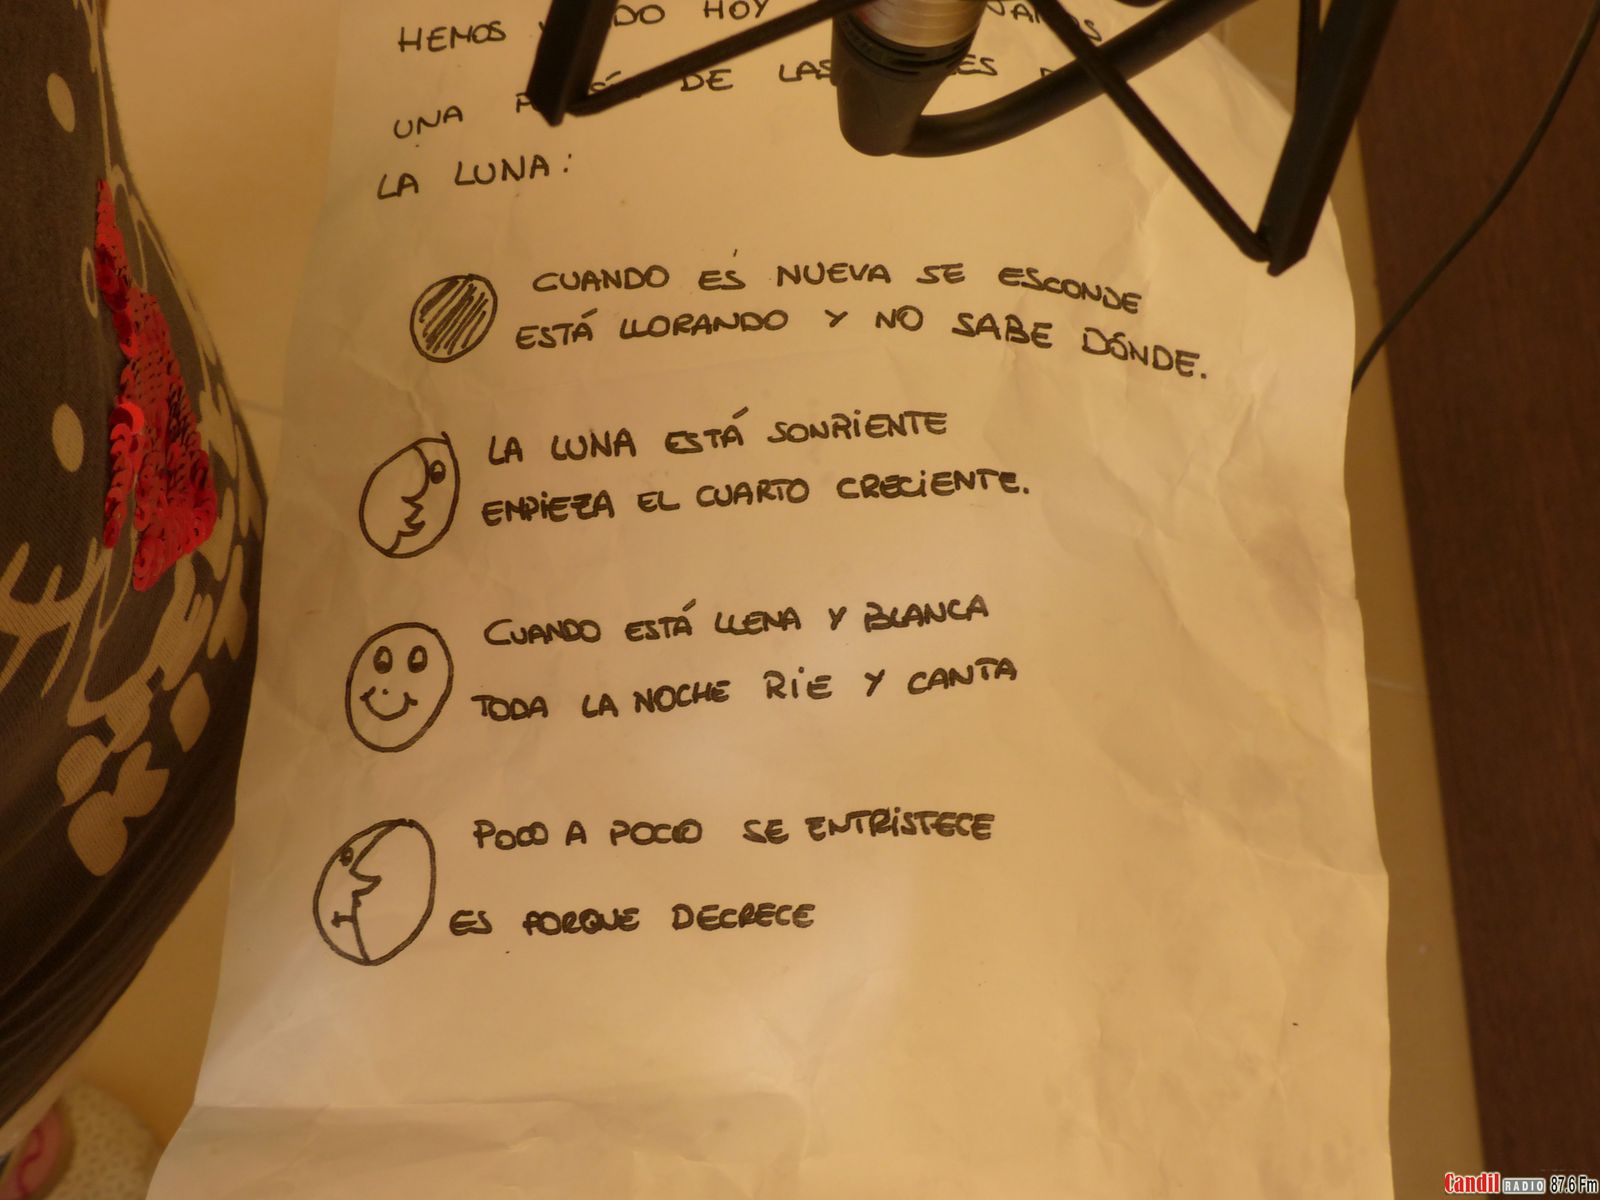 HEMOS HOY
UNA DE LAS
LA LUNA:
CUANDO ES NUEVA SE ESCONDE
ESTÁ LLORANDO Y NO SABE DÓNDE.
LA LUNA ESTÁ SONRIENTE
EMPIEZA EL CUARTO CRECIENTE.
CUANDO ESTÁ LLENA Y BLANCA
TODA LA NOCHE RIE Y CANTA
POCO A POCO SE ENTRISTECE
ES PORQUE DECRECE
Candil RADIO 87.6 Fm